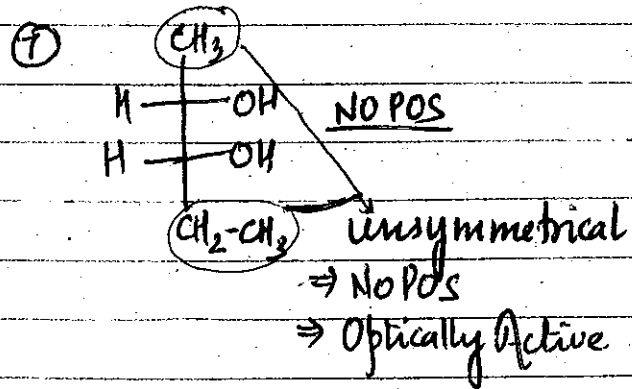 ⑦ CH3
H OH NO POS
H OH
CH2-CH3 unsymmetrical
⇒ NO POS
⇒ Optically Active